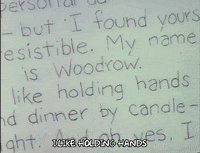 personal ad
– but I found yours
resistible. My name
is Woodrow.
like holding hands
nd dinner by candle-
ght. And oh yes, I
I LIKE HOLDING HANDS